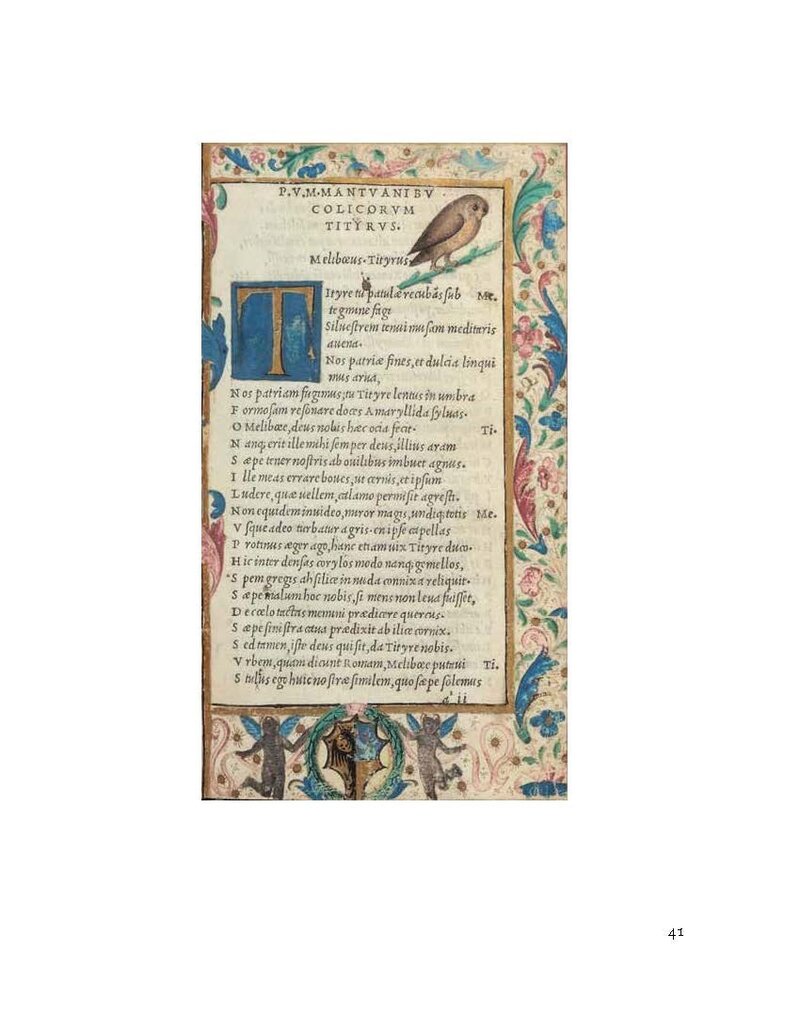 P.V.M.MANTVANI BV
COLICORVM
TITYRVS.
Melibœus. Tityrus.
Tityre tu patulæ recubãs sub Me.
tegmine fagi
Siluestrem tenui musam meditaris
auena.
Nos patriæ fines, et dulcia linqui
mus arua,
Nos patriam fugimus; tu Tityre lentus in umbra
Formosam resonare doces Amaryllida syluas.
O Melibœe, deus nobis hæc ocia fecit. Ti.
Nanq; erit ille mihi semper deus, illius aram
Sæpe tener nostris ab ouilibus imbuet agnus.
Ille meas errare boues, ut cernis, et ipsum
Ludere, quæ uellem, calamo permisit agresti.
Non equidem inuideo, miror magis, undiq; totis Me.
Vsque adeo turbatur agris. en ipse capellas
Protinus æger ago, hanc etiam uix Tityre duco.
Hic inter densas corylos modo nanq; gemellos,
Spem gregis ah silice in nuda connixa reliquit.
Sæpe malum hoc nobis, si mens non leua fuisset,
De cœlo tactas memini prædicere quercus.
Sæpe sinistra caua prædixit ab ilice cornix.
Sed tamen, iste deus qui sit, da Tityre nobis.
Vrbem, quam dicunt Romam, Melibœe putaui Ti.
Stultus ego huic nostræ similem, quo sæpe solemus
a ii
41